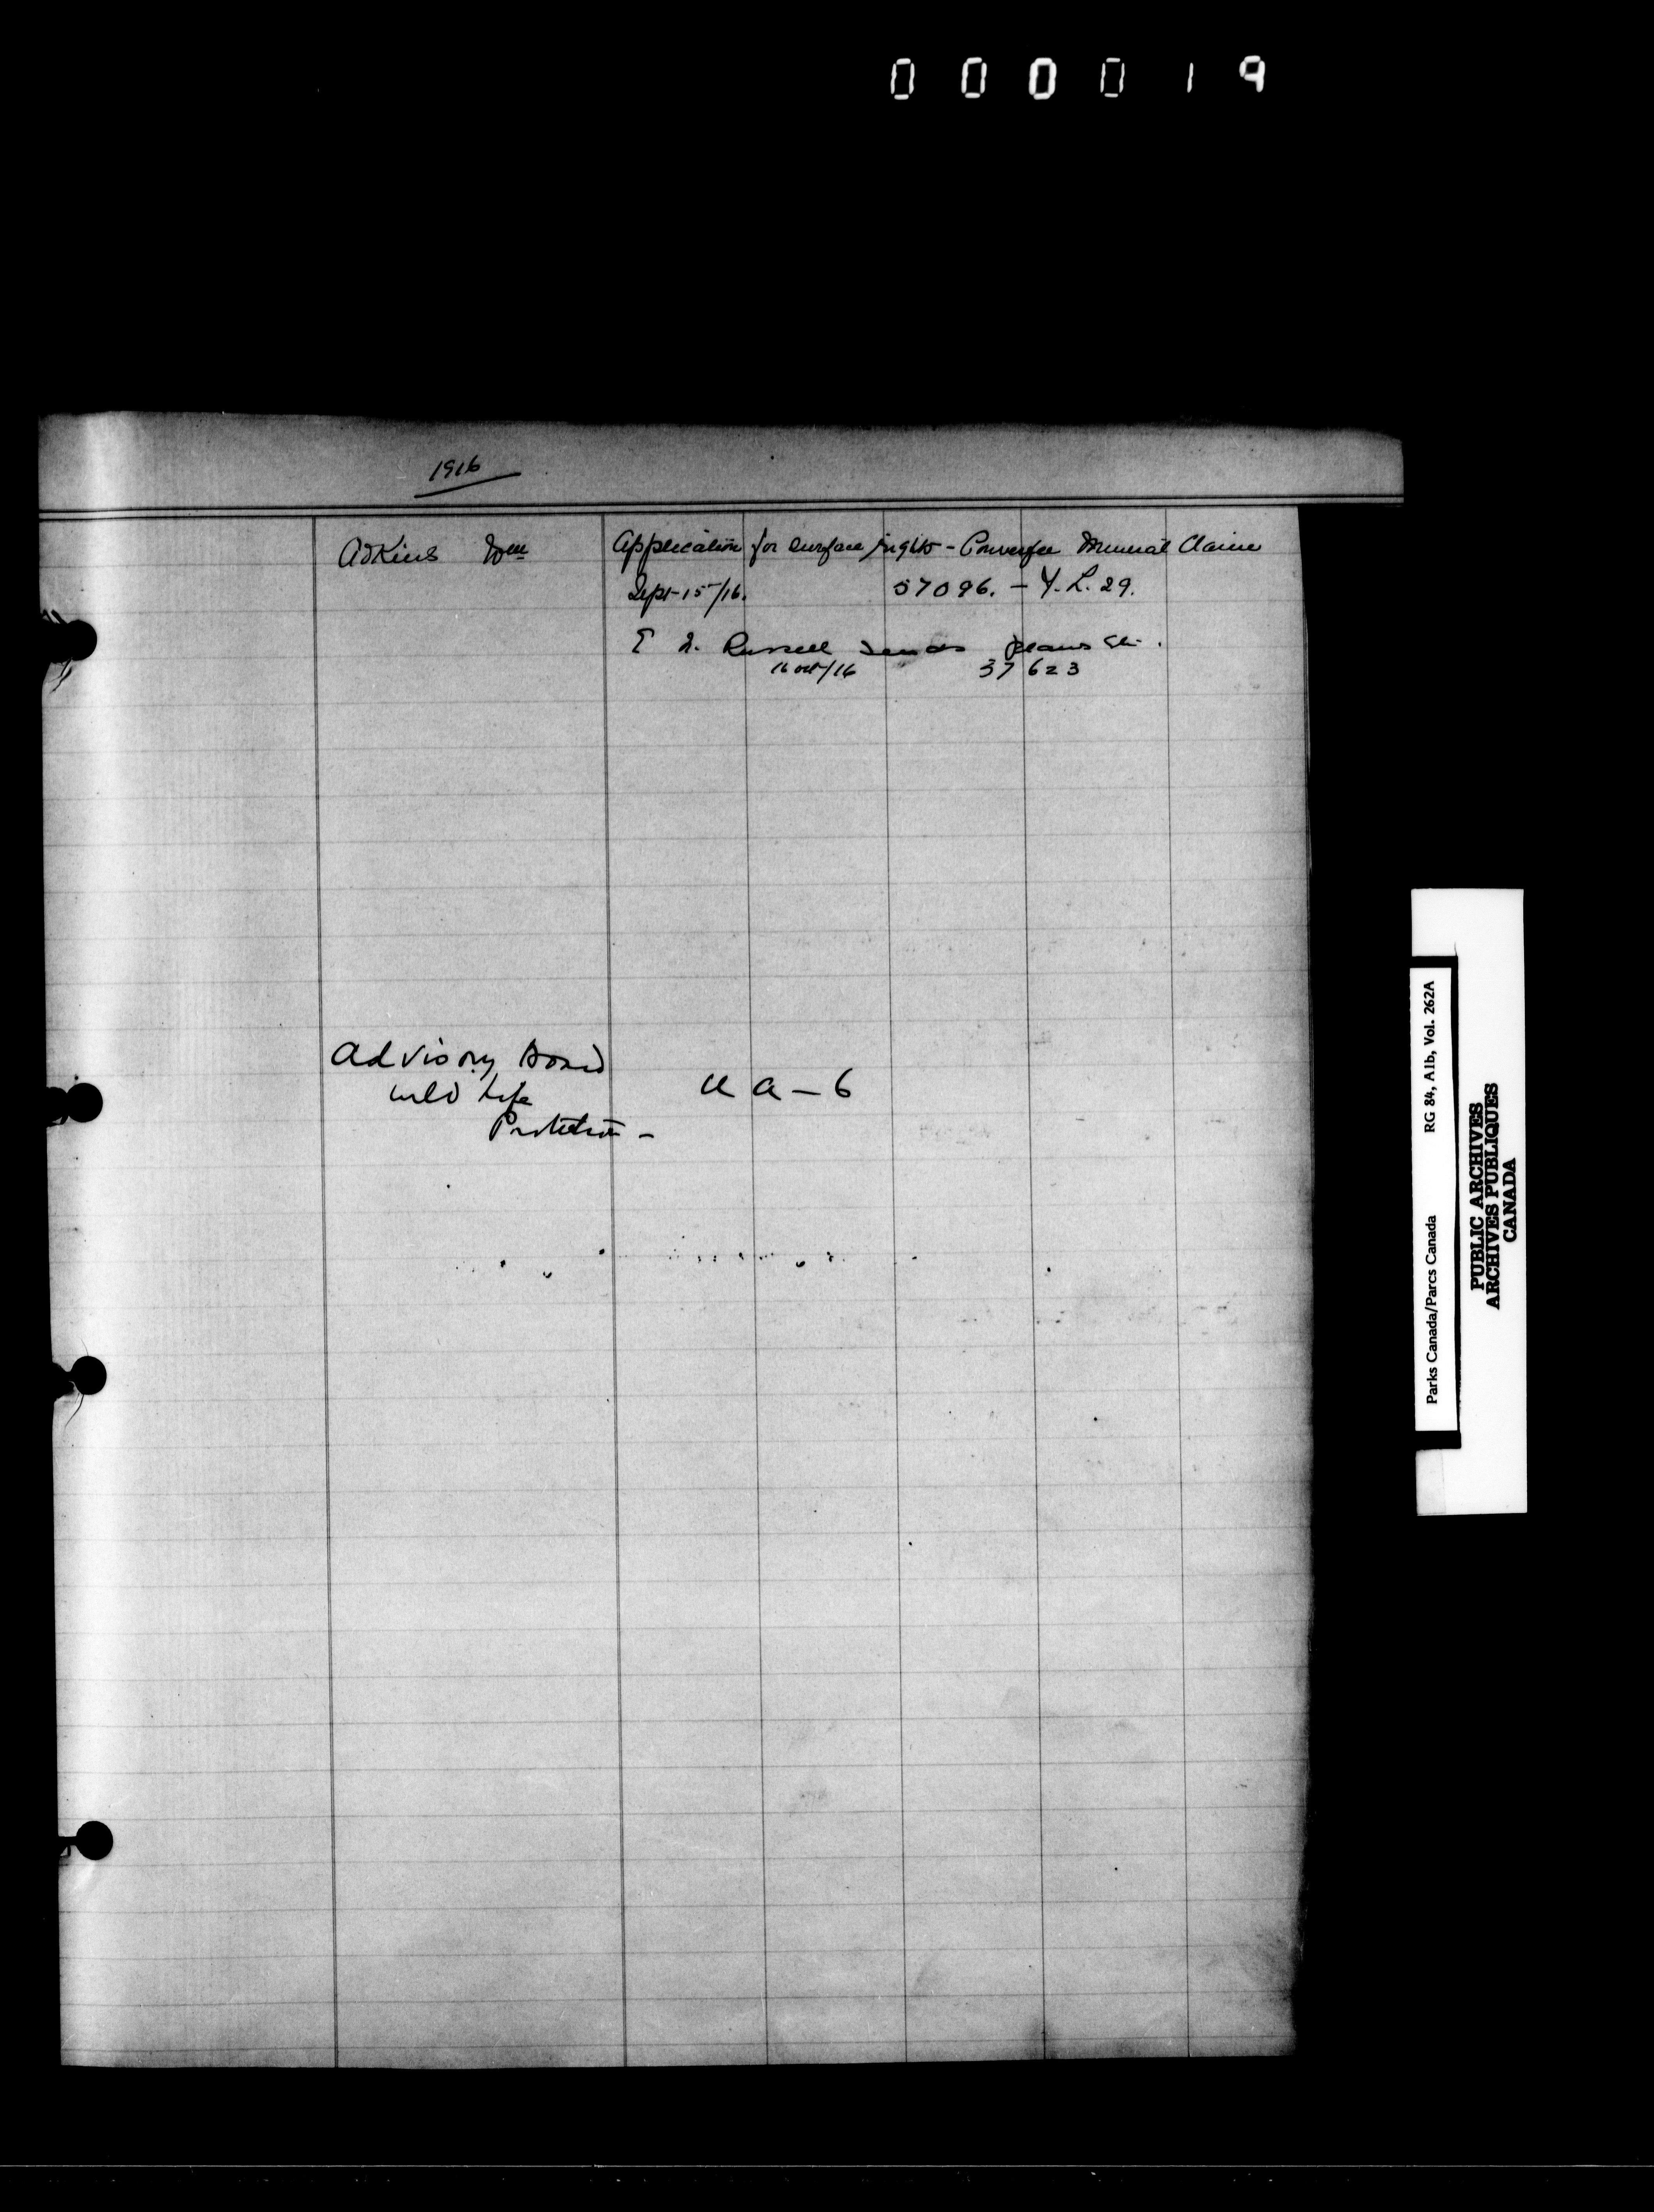 000019
1916
Adkins Wm Application for surface rights - Mineral Claim
Sept-15/16. 57096. - Y.L. 29.
E. Russell sends plans
16 Oct/16 37623
Advisory Board
Wild Life U a - 6
Protection -
Parks Canada/Parcs Canada RG 84, A1b, Vol. 262A
PUBLIC ARCHIVES
ARCHIVES PUBLIQUES
CANADA